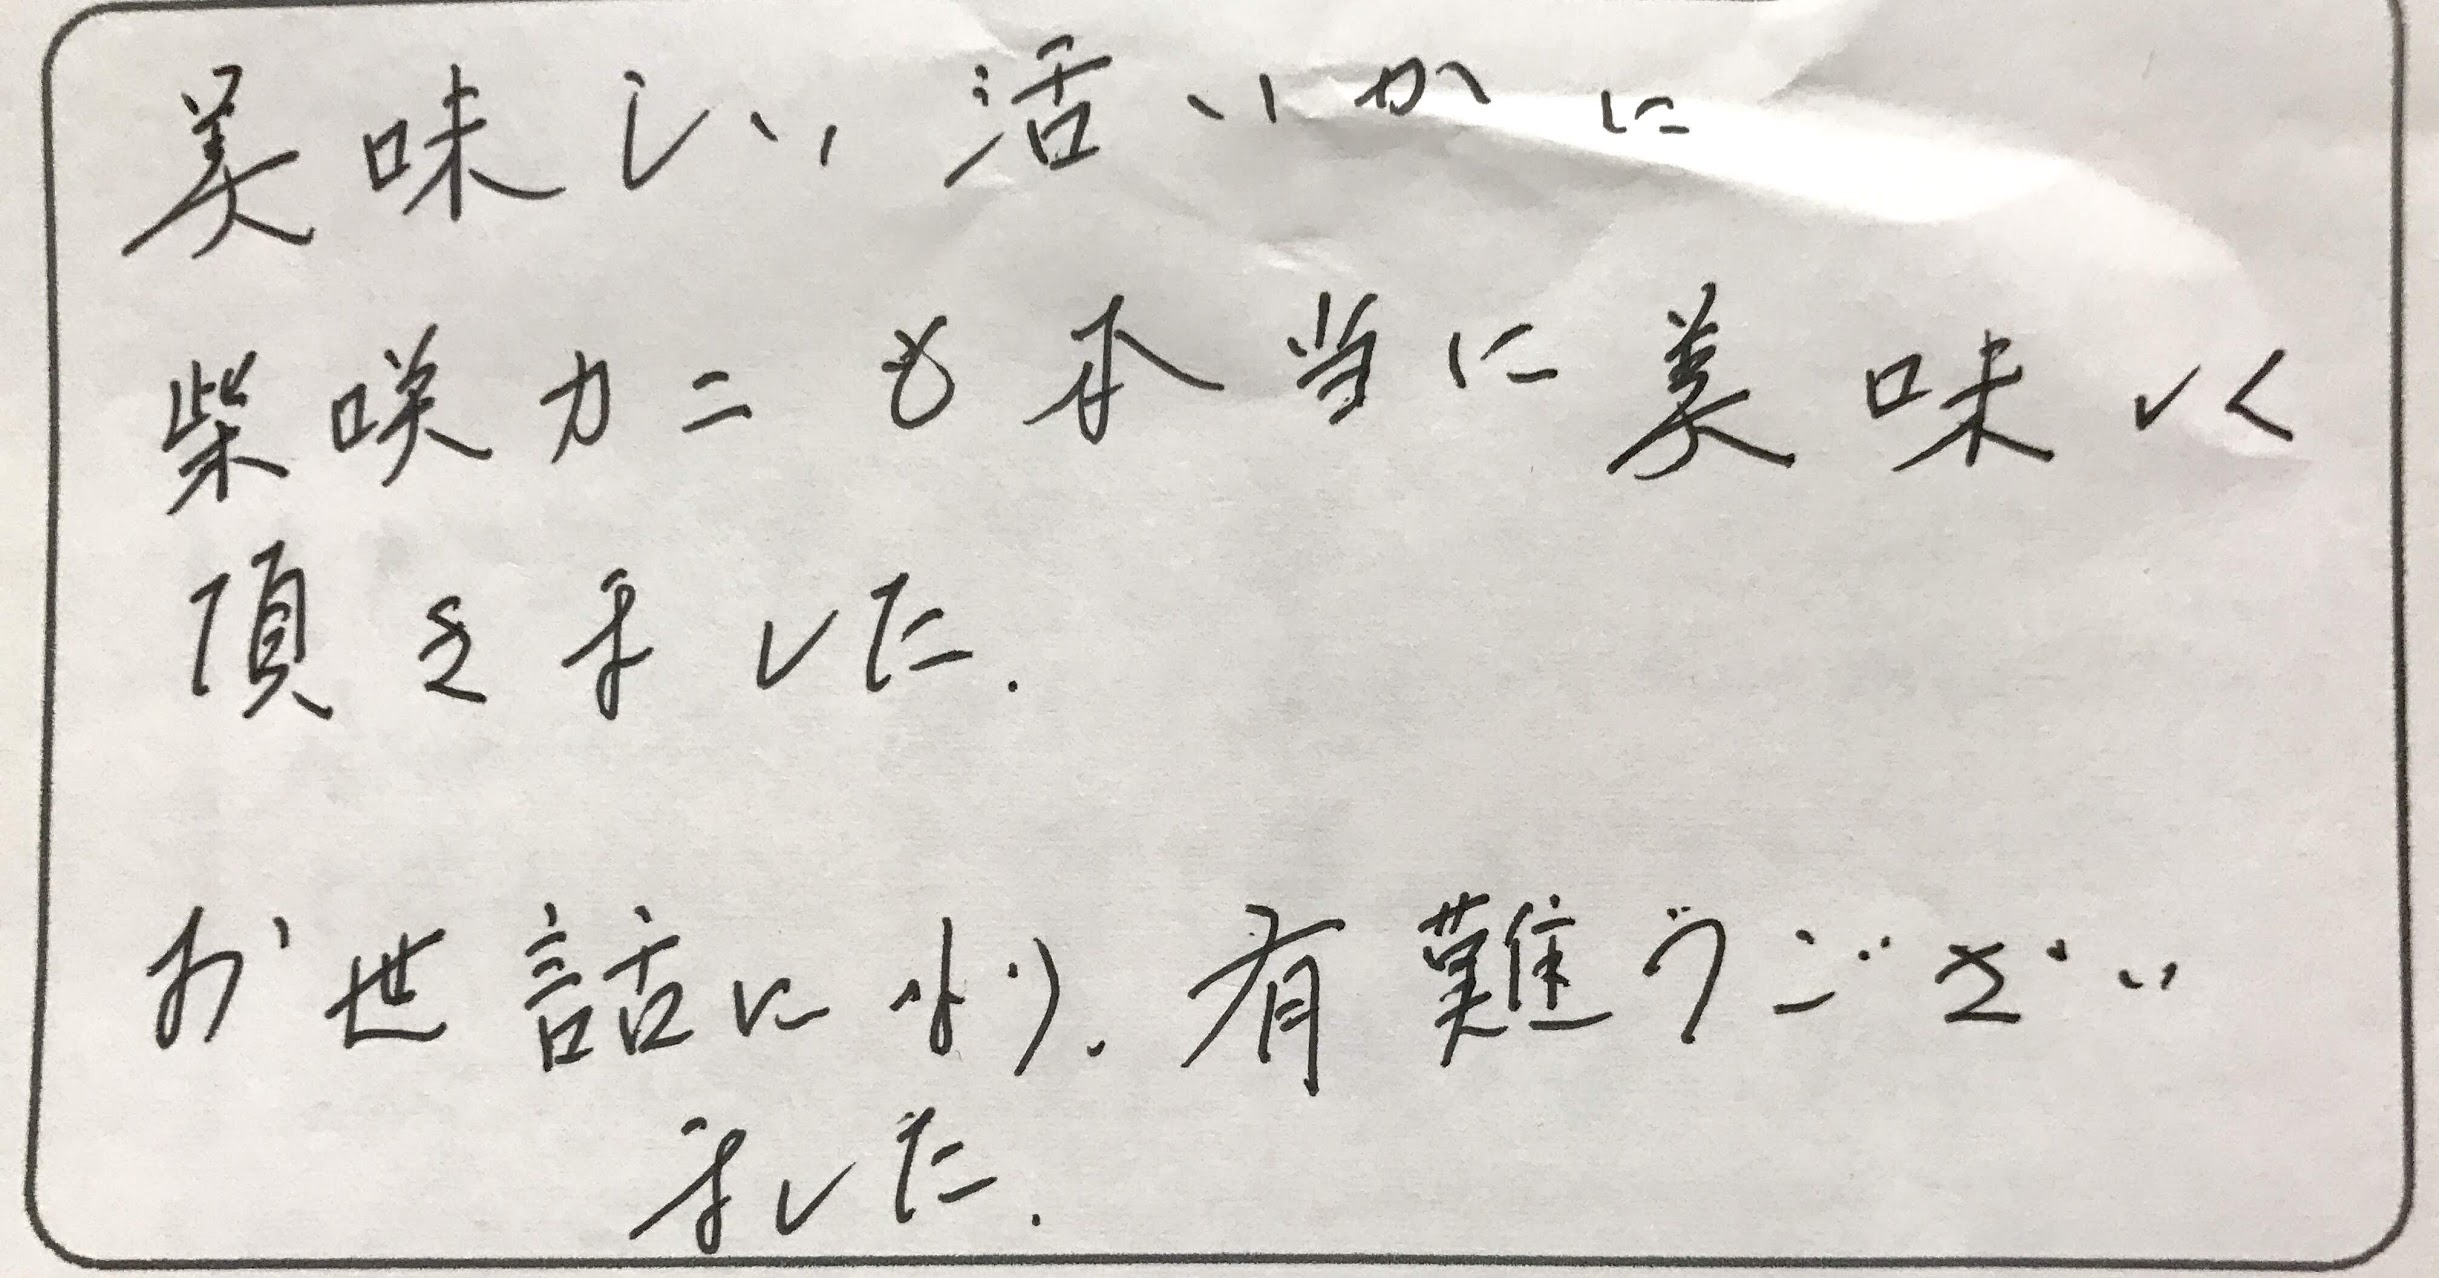 美味しい活いかに
柴咲カニも本当に美味しく
頂きました.
お世話になり.有難うござい
ました.